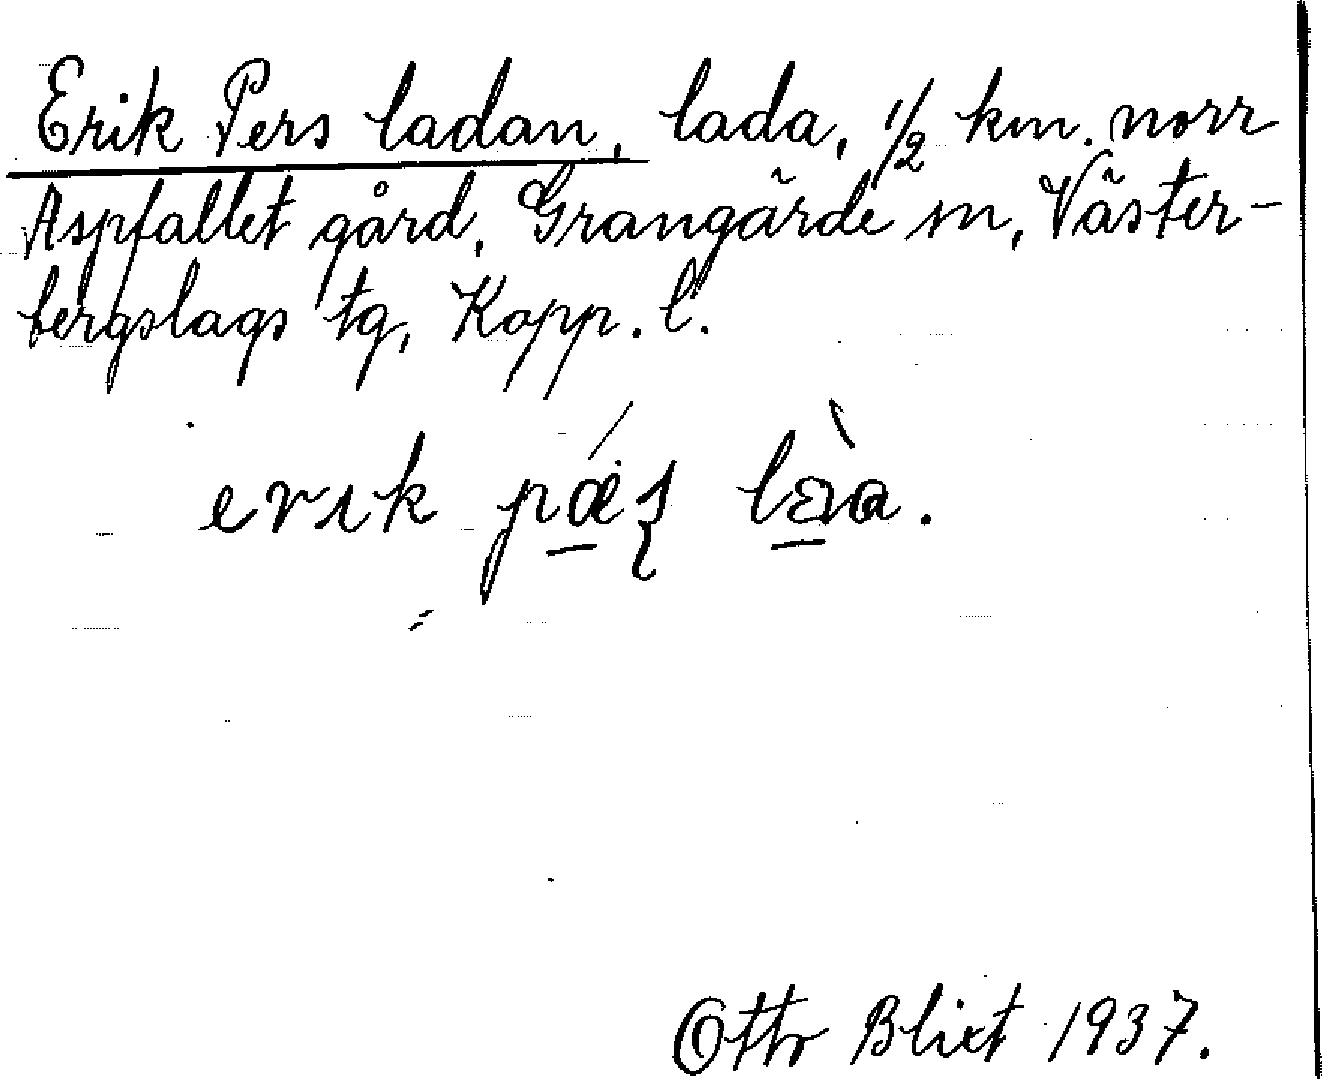 Erik Pers ladan, lada, 1/2 km. norr
Aspfallet gård, Grangärde sn, Väster-
bergslags tg, Kopp. l.
erık
Otto Blixt 1937.